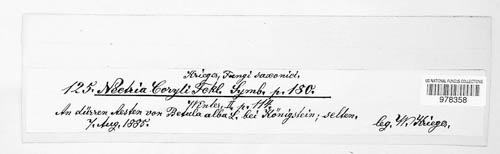 Krieger, Fungi saxonici.
125. Nectria Coryli Fckl. Symb. p. 180.
Winter, II, p. 114.
An dürren Aesten von Betula alba L. bei Königstein; selten.
7. Aug. 1885. leg. W. Krieger.
US NATIONAL FUNGUS COLLECTIONS
978358